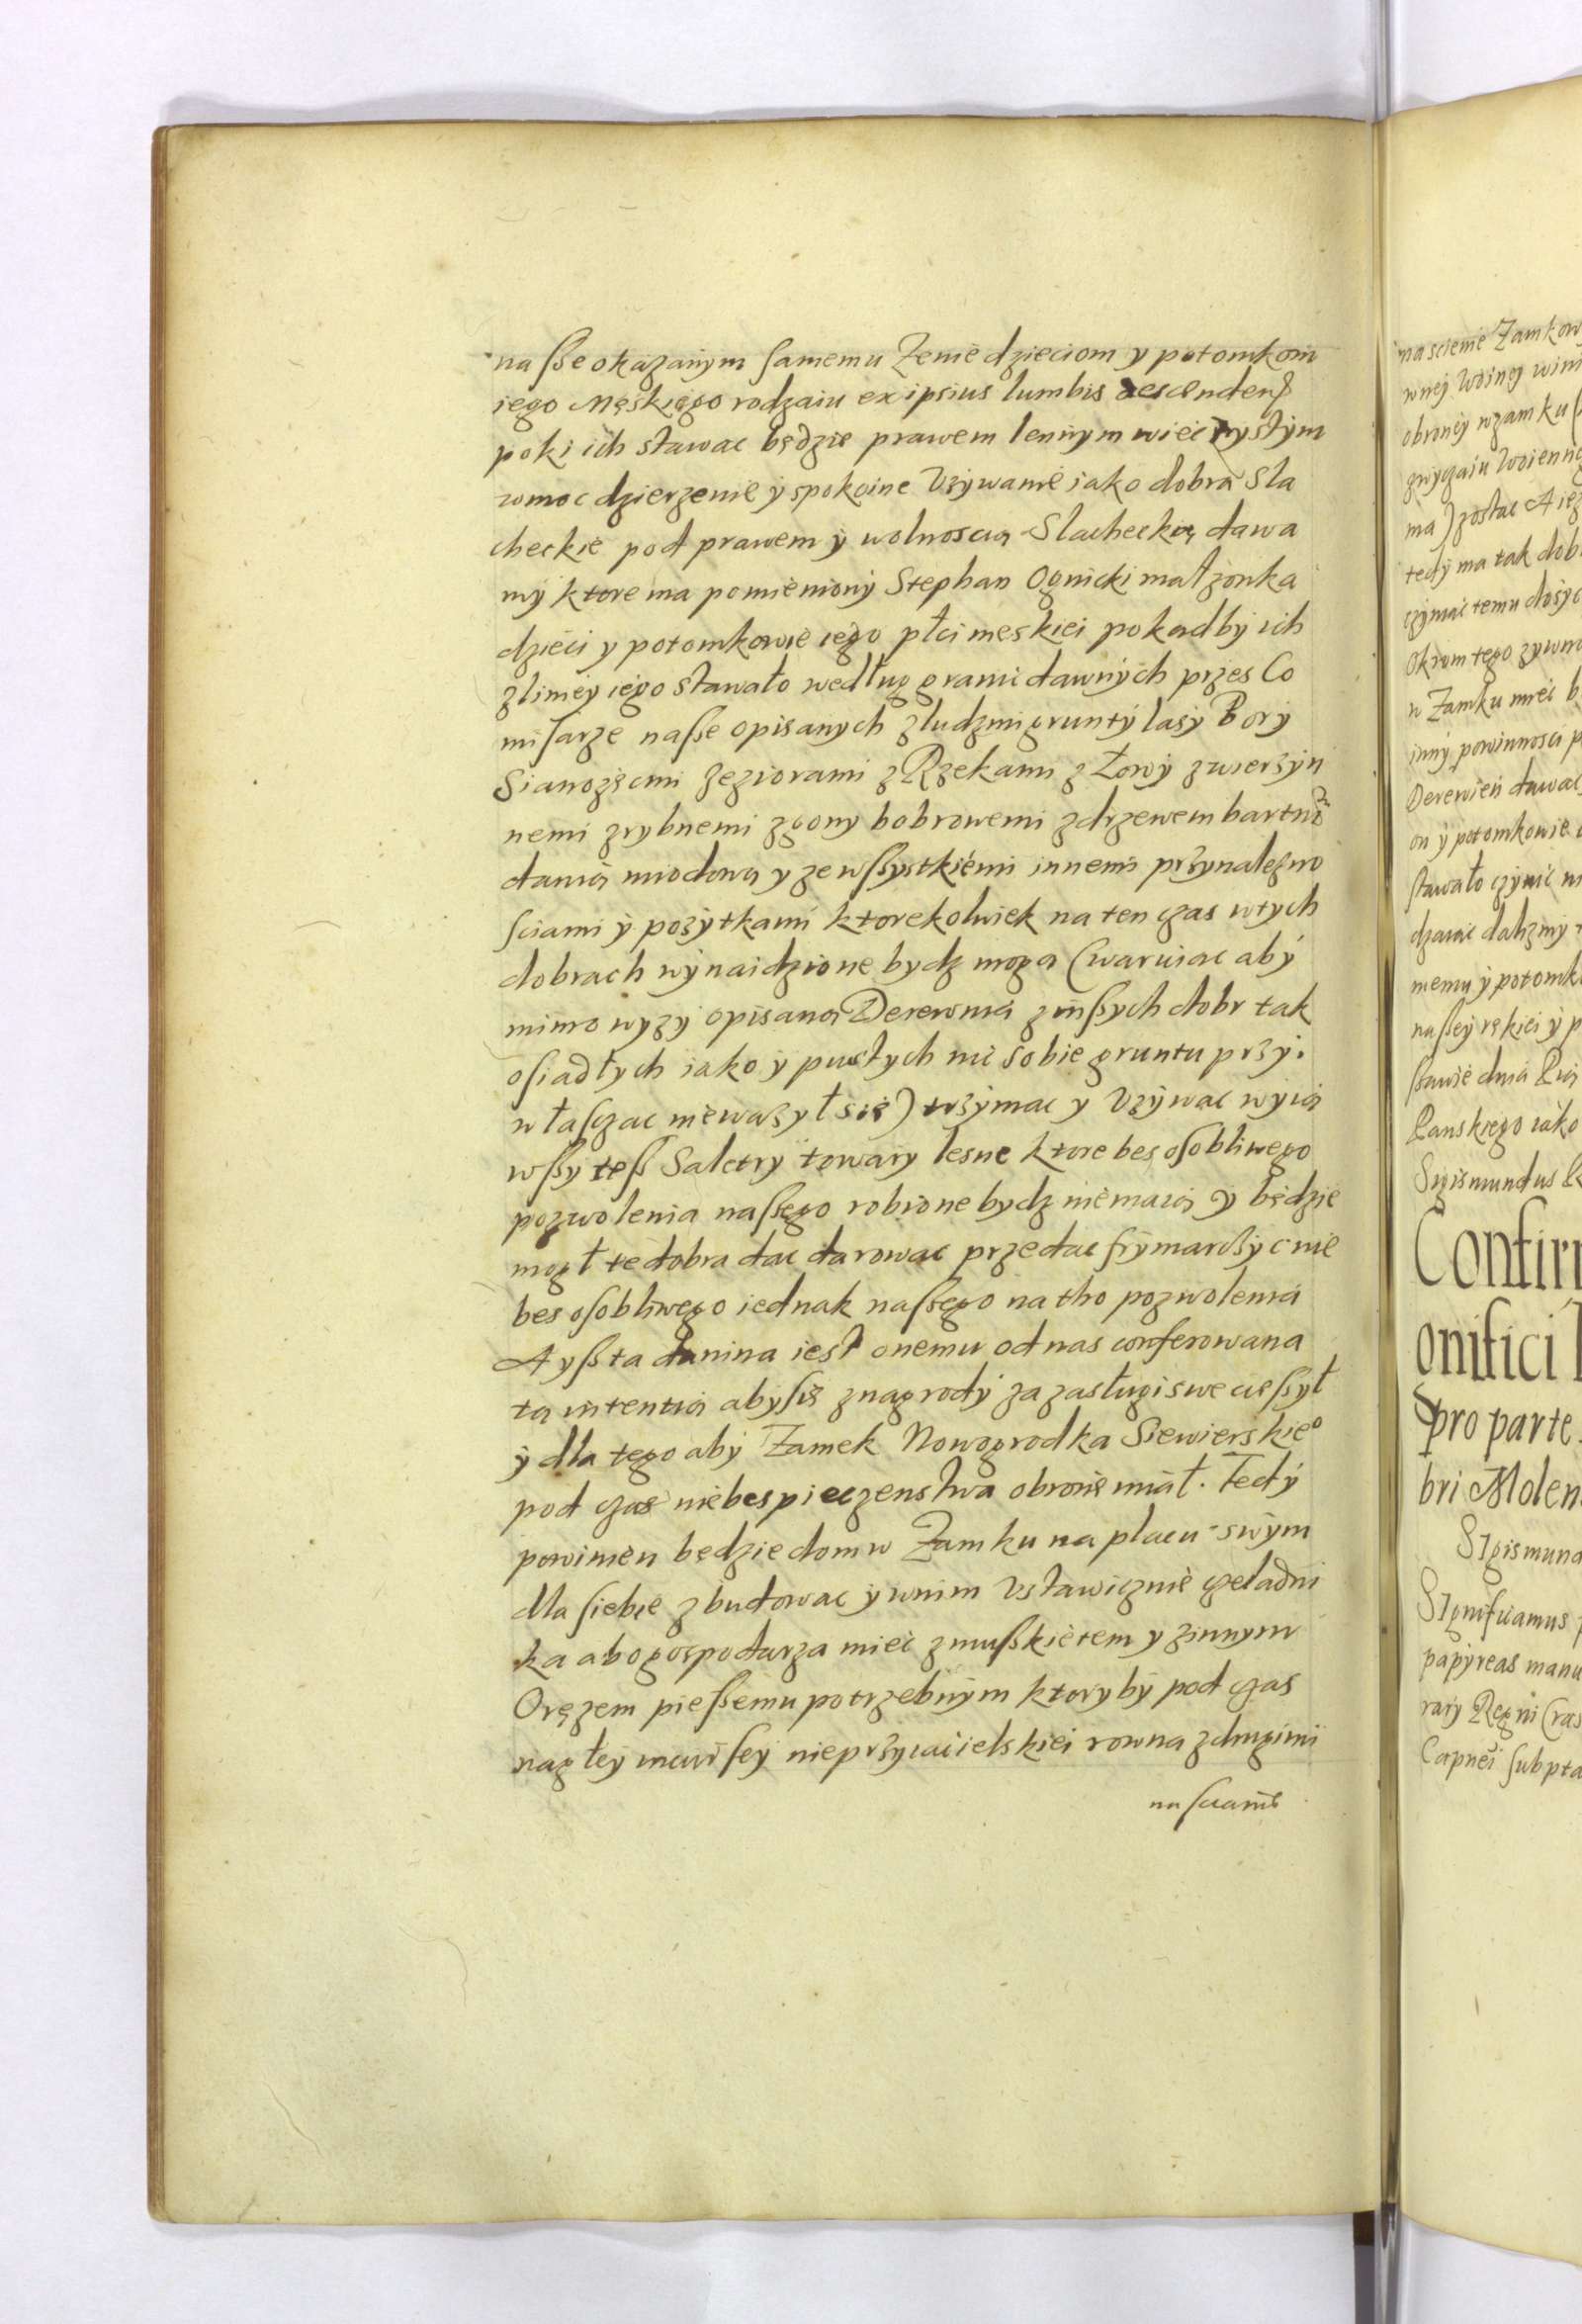 naſße okazanym ſamemu Zenie dzieciom y potomkom
iego Męskięgo rodzaiu ex ipsius lumbis descendent
poki ich stawac będzie prawem lennym wieczystym
wmoc dzierzenie ÿ spokoine Uzÿwanie iako dobra Sla
checkie pod prawem ÿ wolnoscią Slachecką dawa
mÿ ktore ma pomieniony Stephan Ognicki małzonka
dzieci y potomkowie iego płci meskiei pokadbÿ ich
zliniey iego stawało według granic dawnÿch przes Co
miſarze naſße opisanych zludzmi gruntÿ lasÿ Borÿ
Sianozęcmi Zeziorami z Rzekami z Łowÿ zwierzÿn
nemi zrybnemi zgony bobrowemi zdrzewem bartnÿ
danią miodową y ze wſßystkiemi innemi przynalezno
ſciami ÿ pozÿtkami ktorekolwiek na ten czas wtych
dobrach wÿnaidzione bydz moga (waruiac abÿ
mimo wyzÿ opisaną Derewnią zinſßych dobr tak
oſiadłych iako ÿ pustych nic sobie gruntu przÿ.
właſzac niewazył sie) trzÿmac y Vzÿwac wyią
wſßy teſß Saletrÿ towary lesne ktore bes oſobliwego
pozwolenia naſßego robione bydz niemaią ÿ będzie
mogł te dobra dac darowac przedac frÿmarczÿc nie
bes oſobliwego iednak naſßego na tho pozwolenia
A yſß ta danina iest onemu od nas conferowana
tą intentią abyſię znagrodÿ za zasługi swe cieſßył
ÿ dla tego abÿ Zamek Nowogrodka Siewierskieo
pod czas niebespieczenstwa obronię miał. Tedÿ
powinien będzie dom w Zamku na placu swÿm
dla ſiebie zbudowac ÿ wnim Vstawicznie czeladni
ka abo gospodarza miec zmuſßkietem y zinnym
Oręzem pieſßemu potrzebnÿm ktory bÿ pod czas
nagłey incurſeÿ nieprzyiacielskiei rowna zdrugimi
na scienie Zamkow
obroneÿ wzamku
zwyczaiu Woienne
tedÿ ma tak dob
czÿniac temu dosÿc
Okrom tego zywno
w Zamku miec b
innÿ powinnosci p
Derewień dawac
on ÿ potomkowie
stawało czÿnic
memu ÿ potomk
naſßeÿ rękiei ÿ p
Panskiego iako
Sigismundus
Confir
onifici
pro parte
bri Molen
SIgismund
SIgnificamus
papÿreas manu
Capnei ſubpta